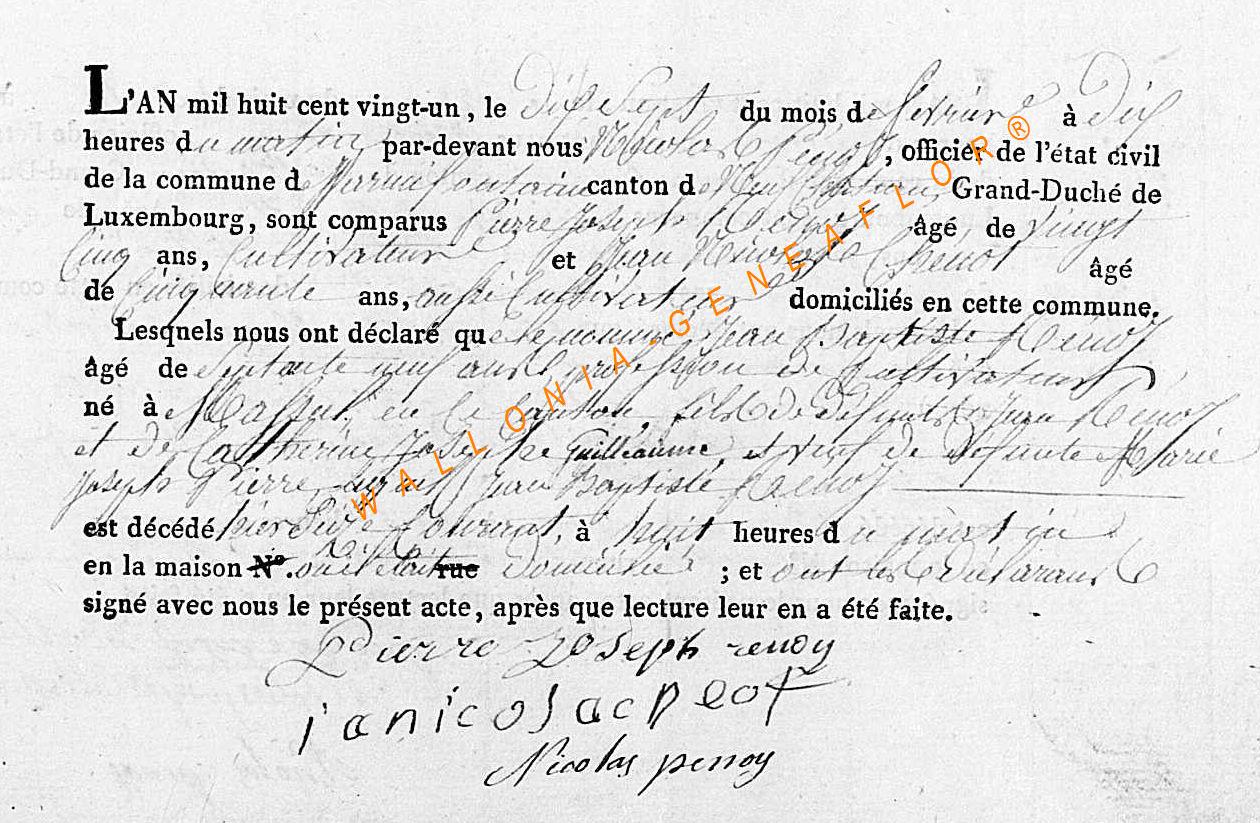 L'AN mil huit cent vingt-un, le Dix Sept du mois de fevrier à Dix
heures du matin par-devant nous Nicolas Penoy, officier de l'état civil
de la commune de canton de Neufchateau Grand-Duché de
Luxembourg, sont comparus Pierre Joseph Renoy âgé de vingt
Cinq ans, Cultivateur et Jean Nicolas âgé
de Cinquante ans, aussi Cultivateur domiciliés en cette commune.
Lesquels nous ont déclaré que le nommé Jean Baptiste Renoy
âgé de Septante neuf ans profession de Cultivateur
né à en le Canton, fils de défunts Jean Renoy
et de Catherine Josephe guilleaume, et veuf de défunte Marie
Joseph Pierre Jean Baptiste Renoy
est décédé hier Seize Courant, à huit heures du matin
en la maison N°. où il était rue domicilié ; et ont les déclarans
signé avec nous le présent acte, après que lecture leur en a été faite.
Pierre Joseph renoy
Nicolas penoy
WALLONIA-GENEAFLOR®